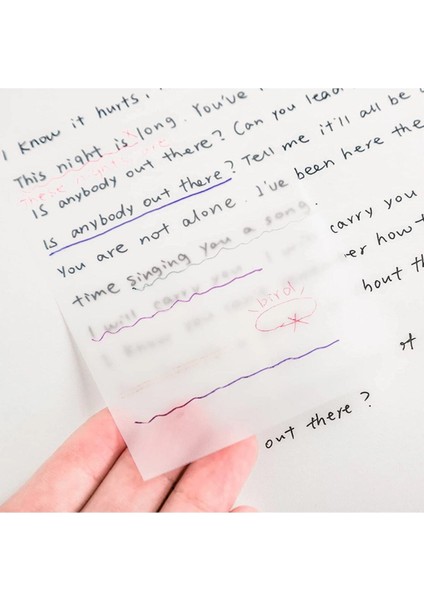 I know it hurts,
This night is long. You've
These nights are
Is anybody out there? Can you lead
Is anybody out there? Tell me it'll all be
You are not alone. I've been here the
time singing you a song.
carry you
I will carry you. I will
er how t
I know you
bird
bout th
out there?